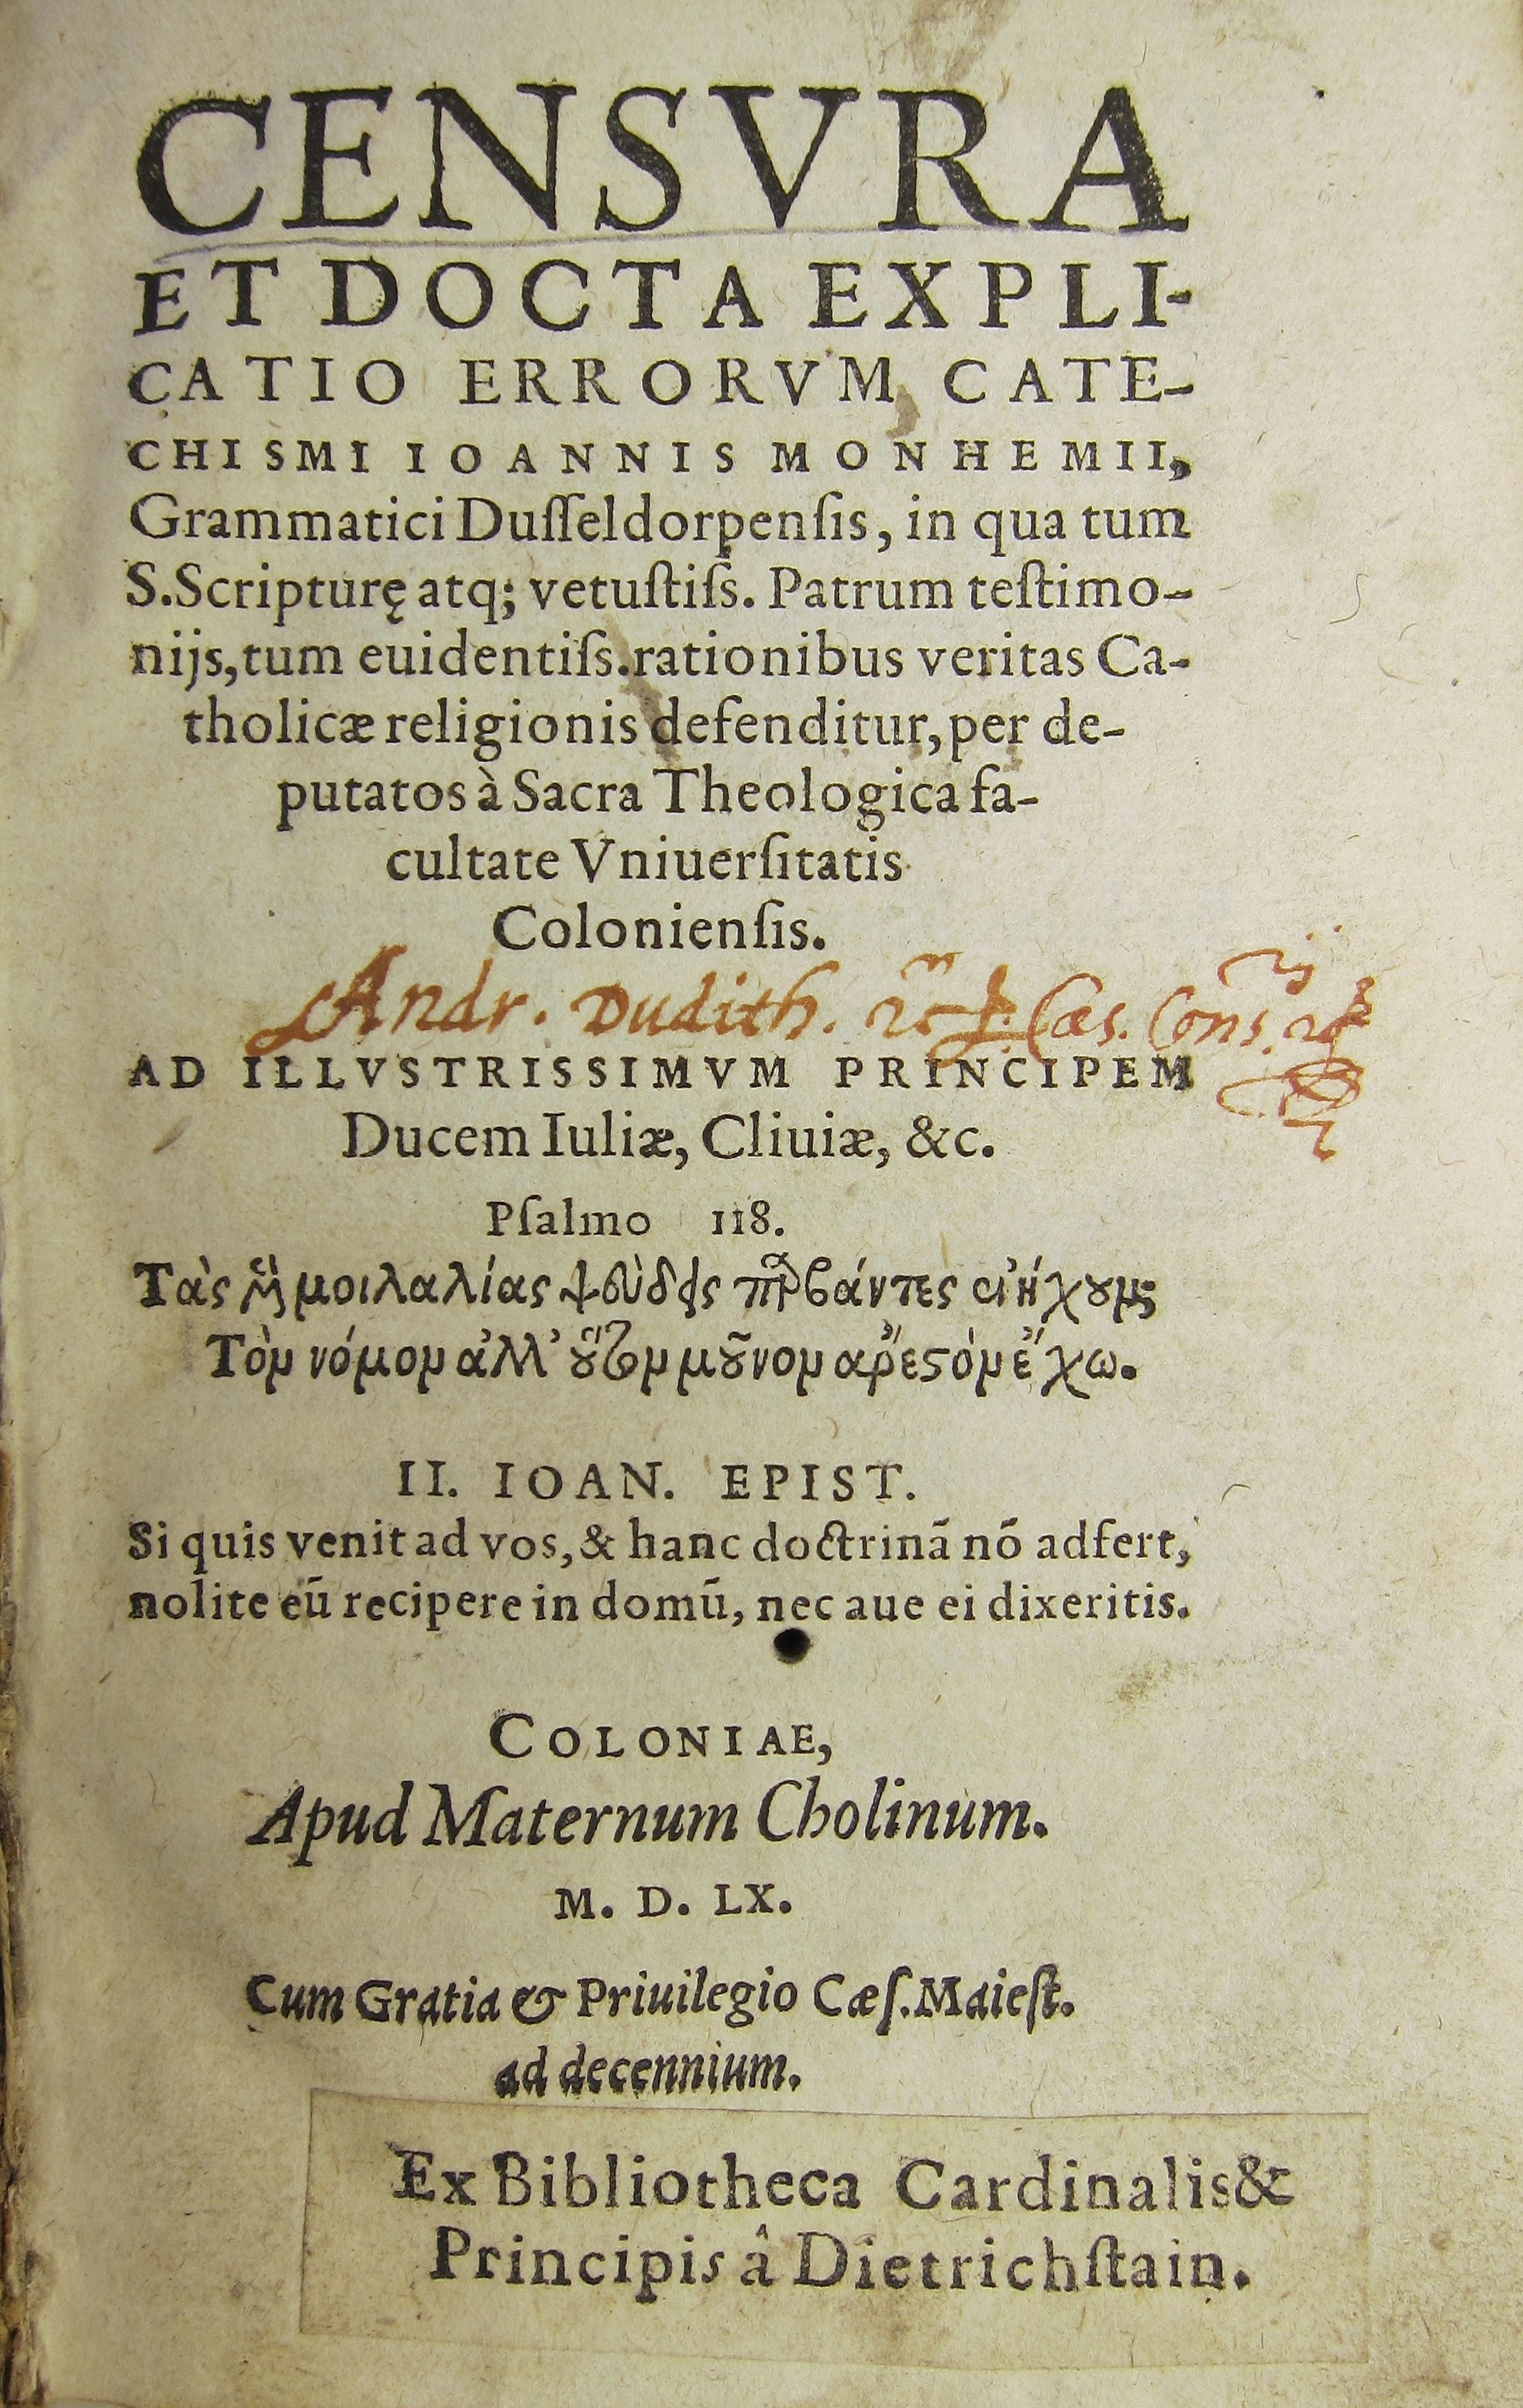 CENSVRA
ET DOCTA EXPLI-
CATIO ERRORVM CATE-
CHISMI IOANNIS MONHEMII,
Grammatici Duſſeldorpenſis, in qua tum
S. Scripturę atq; vetuſtiſs. Patrum teſtimo-
nijs, tum euidentiſs. rationibus veritas Ca-
tholicæ religionis defenditur, per de-
putatos à Sacra Theologica fa-
cultate Vniuerſitatis
Colonienſis.
Andr. Dudith. Cæs. Cons.
AD ILLVSTRISSIMVM PRINCIPEM
Ducem Iuliæ, Cliuiæ, &c.
Pſalmo 118.
Τὰς μοι λαλίας
Τὸμ νόμομ ἀλλ' μοῦνομ ἔχω.
II. IOAN. EPIST.
Si quis venit ad vos, & hanc doctrinā nō adfert,
nolite eū recipere in domū, nec aue ei dixeritis.
COLONIAE,
Apud Maternum Cholinum.
M. D. LX.
Cum Gratia & Priuilegio Cæſ. Maieſt.
ad decennium.
Ex Bibliotheca Cardinalis &
Principis â Dietrichſtain.